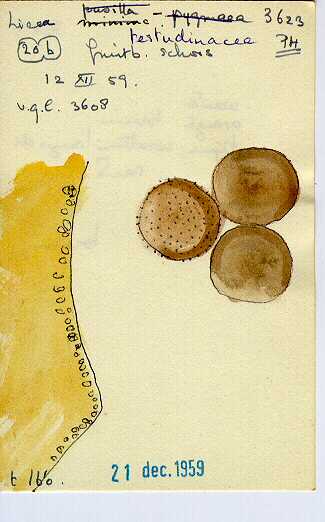 Licea pusilla - pygmaea 3623
minima testudinacea
20b fruitb. schors PH
12 XII 59.
v.g.l. 3608
t 160.
21 dec. 1959